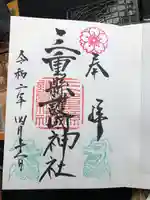 奉拝
三重縣護國神社
令和六年四月十三日